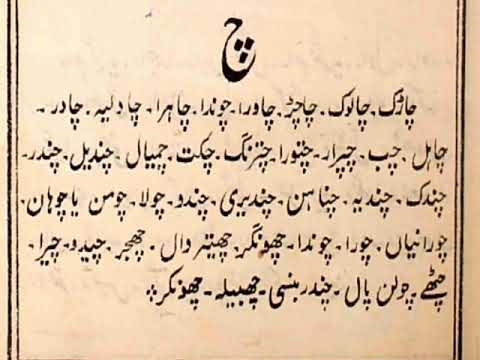 چ
چاڑک۔ چالوک۔ چاچڑ۔ چاورا۔ چوندا۔ چاہرا۔ چادلیہ۔ چادر۔
چاہل۔ چب۔ چپرار۔ چتورا۔ چترنگ۔ چکت۔ چمیال۔ چندیل۔ چندر۔
چندک۔ چندیہ۔ چناہن۔ چندیری۔ چندو۔ چولا۔ چومن یا چوہان۔
چورانیاں۔ چورا۔ چوندا۔ چھونگر۔ چھینر وال۔ چھجر۔ چیدو۔ چیرا۔
چٹھے۔ چولن پال۔ چندر بنسی۔ چھبیلہ۔ چھونکر